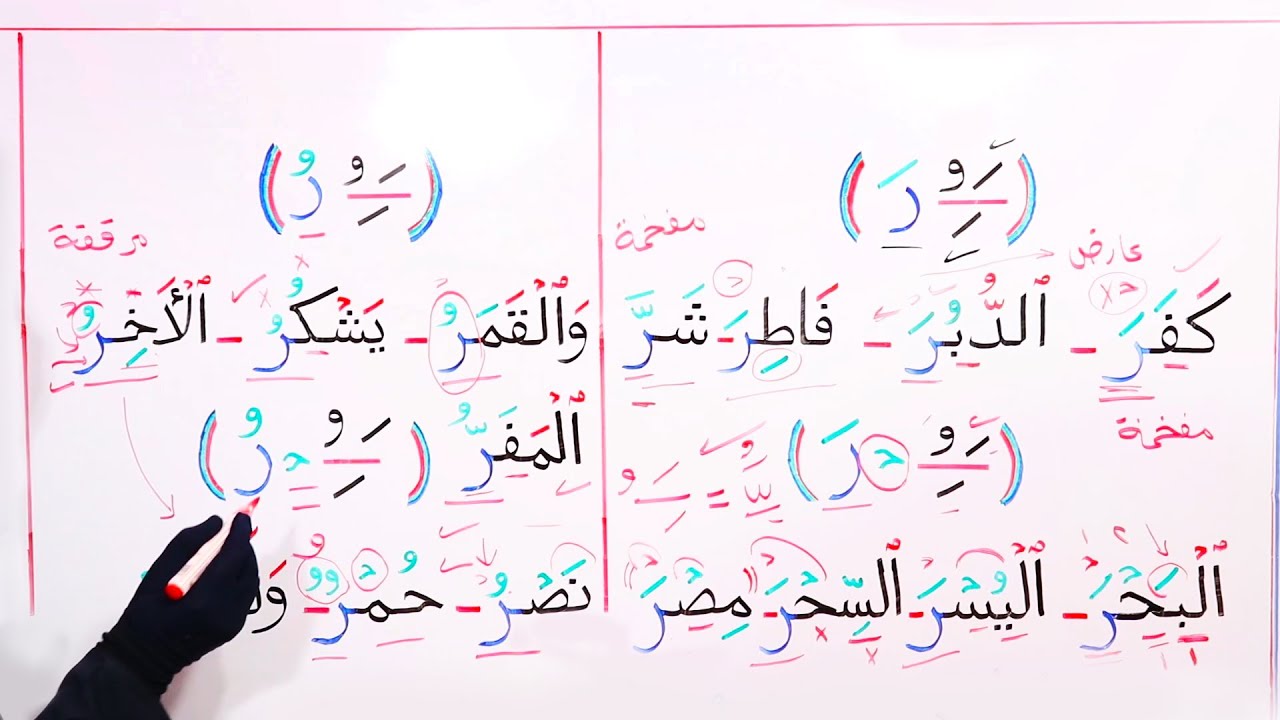 ( رَ )
مفخمة عارض
كَفَرَ - ٱلدُّبُرَ - فَاطِرَ شَرَّ
مفخمة
( رَ )
ٱلْبَحْرَ - ٱلْيُسْرَ - ٱلسِّحْرَ مِصْرَ
( رُ )
مرققة
وَٱلْقَمَرُ - يَشْكُرُ - ٱلْأَخِرُ
ٱلْمَفَرُّ
( رُ )
نَصْرُ - حُمْرٌ